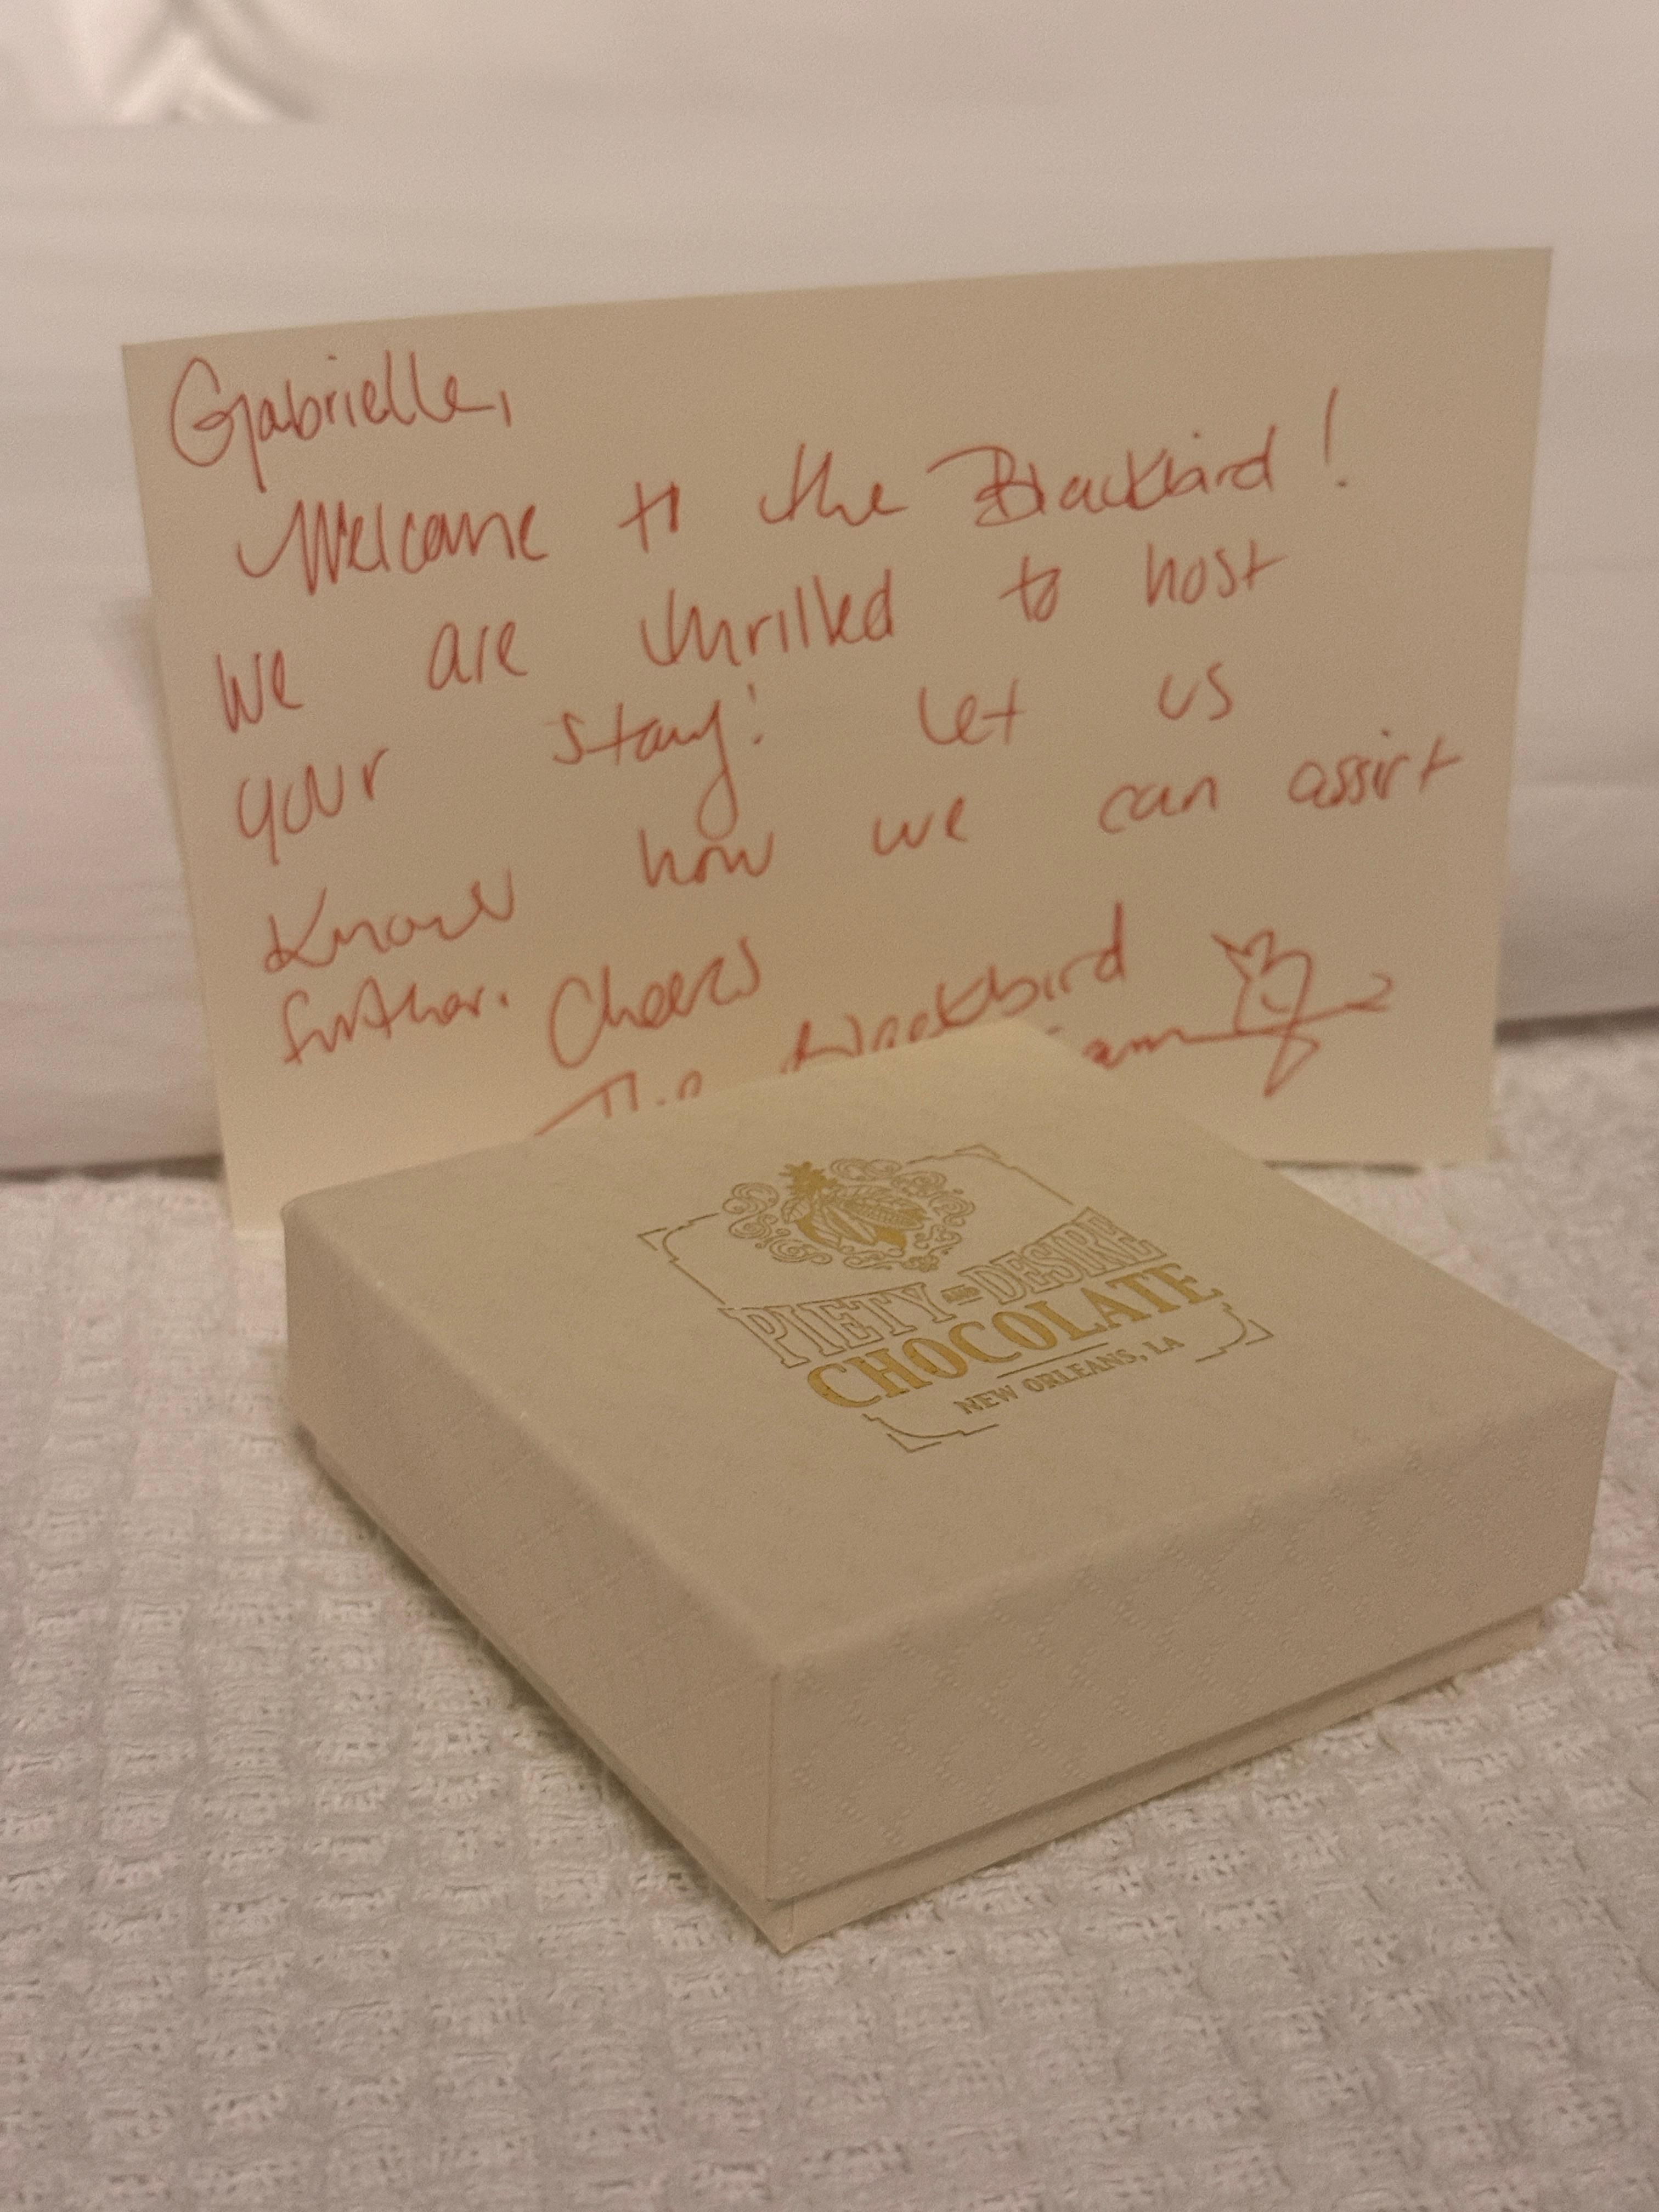 Gabrielle,
Welcome to the Blackbird!
We are thrilled to host
your stay! Let us
know how we can assist
further. Cheers
The Blackbird
PIETY AND DESIRE
CHOCOLATE
NEW ORLEANS, LA